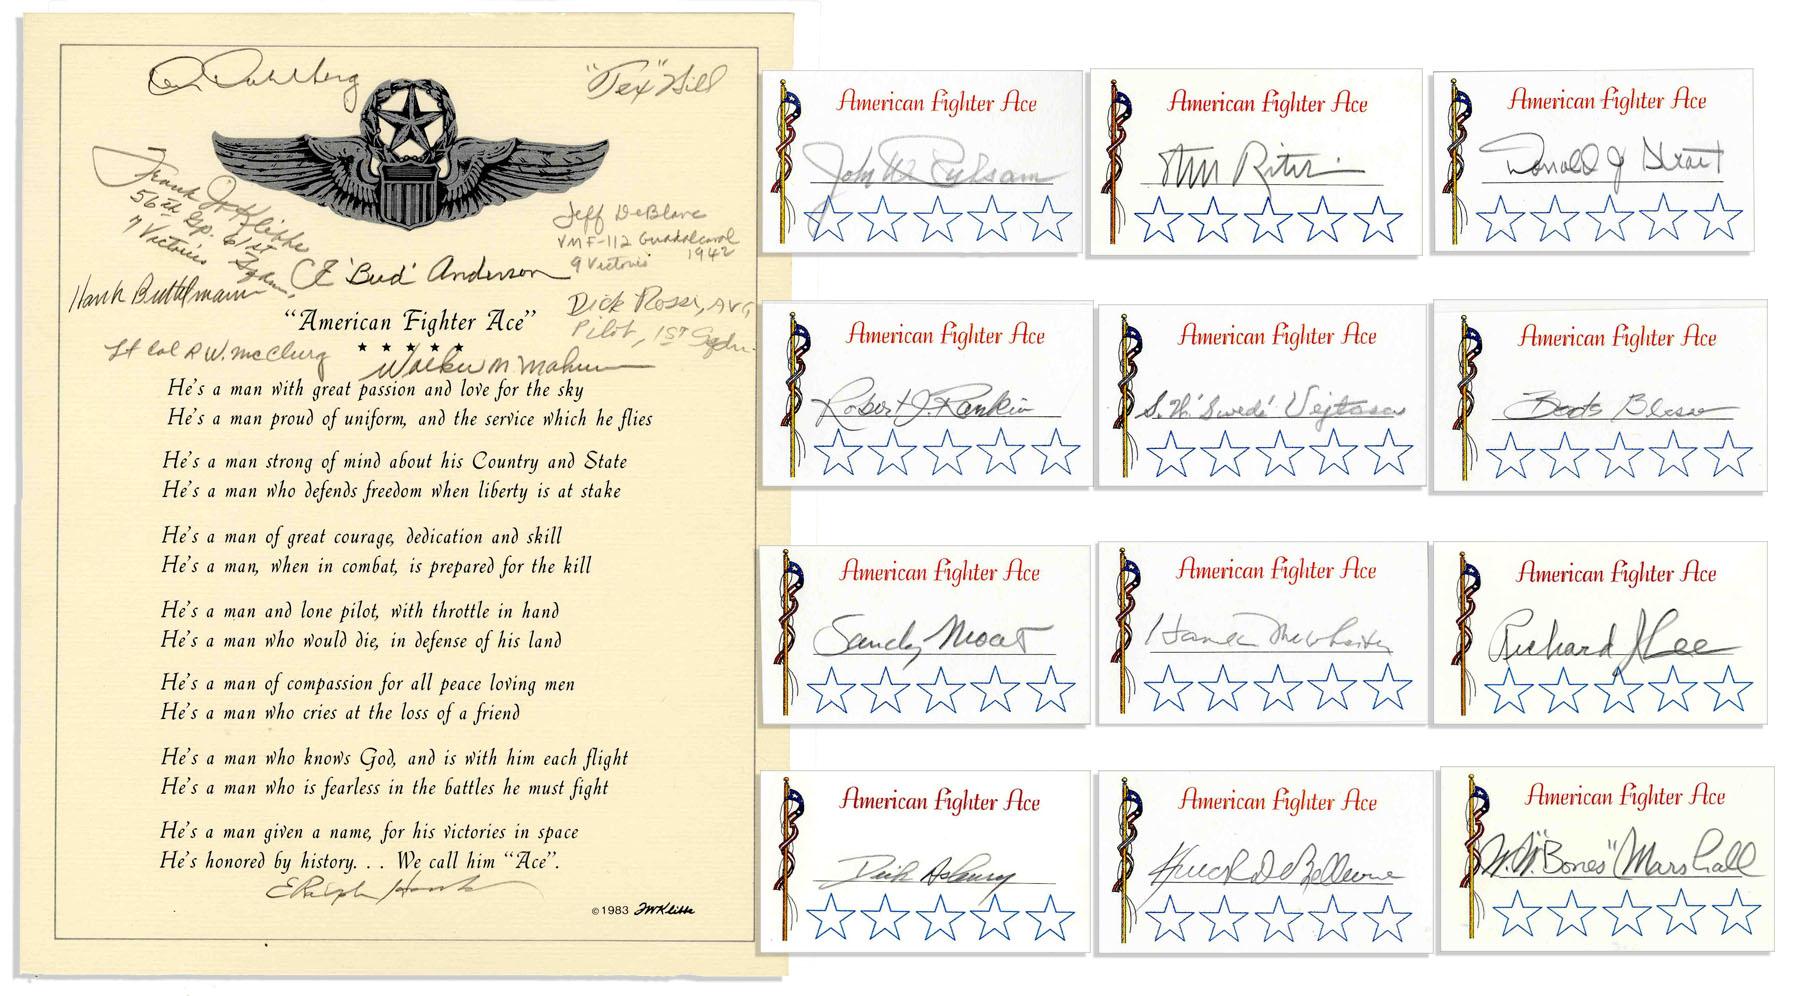 "Tex" Hill
Frank J. Klibbe
56th Gp. 61st Sqdn.
7 Victories
Jeff DeBlanc
VMF-112 Guadalcanal
1942
9 Victories
CE 'Bud' Anderson
Hank Buttelmann
Dick Rossi, AVG
Pilot, 1ST Sqdn.
"American Fighter Ace"
Lt Col R W. McClurg
Walker M Mahurin
He's a man with great passion and love for the sky
He's a man proud of uniform, and the service which he flies
He's a man strong of mind about his Country and State
He's a man who defends freedom when liberty is at stake
He's a man of great courage, dedication and skill
He's a man, when in combat, is prepared for the kill
He's a man and lone pilot, with throttle in hand
He's a man who would die, in defense of his land
He's a man of compassion for all peace loving men
He's a man who cries at the loss of a friend
He's a man who knows God, and is with him each flight
He's a man who is fearless in the battles he must fight
He's a man given a name, for his victories in space
He's honored by history. . . We call him "Ace".
©1983 FWKlibbe
American Fighter Ace
American Fighter Ace
American Fighter Ace
Donald J Strait
American Fighter Ace
Robert J. Rankin
American Fighter Ace
S. W. 'Swede' Vejtasa
American Fighter Ace
Boots Blesse
American Fighter Ace
Sandy Moats
American Fighter Ace
American Fighter Ace
Richard J Lee
American Fighter Ace
Dick Asbury
American Fighter Ace
American Fighter Ace
W. W. "Bones" Marshall